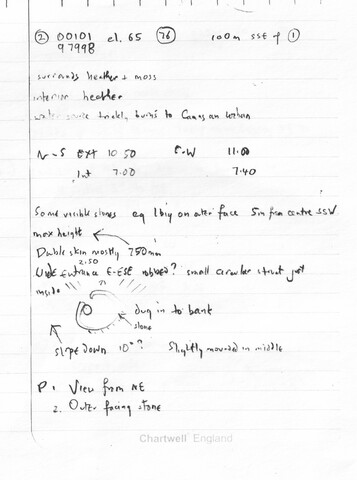 ② 00101 el. 65 76 100m SSE of ①
97998
surrounds heather + moss
interior heather
water source trickly burns to Camas an
N-S EXT 10.50 E-W 11.00
Int 7.00 7.40
Some visible stones eg 1 big on outer face 5m from centre SSW
max height
Double skin mostly 750mm
2.50
Wide Entrance E-ESE robbed? small circular struct just
inside
dug in to bank
stone
slope down 10°? Slightly mounded in middle
P 1 View from NE
2. Outer facing stone
Chartwell England